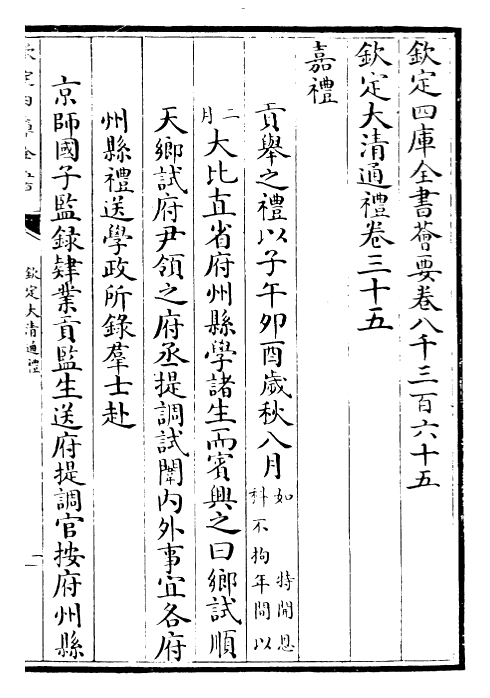 欽定四庫全書薈要卷八千三百六十五
欽定大清通禮卷三十五
嘉禮
貢舉之禮以子午卯酉歲秋八月如特開恩科不拘年間以
二月大比直省府州縣學諸生而賓興之曰鄉試順
天鄉試府尹領之府丞提調試闈内外事宜各府
州縣禮送學政所錄羣士赴
京師國子監録肄業貢監生送府提調官按府州縣
欽定大清通禮
一